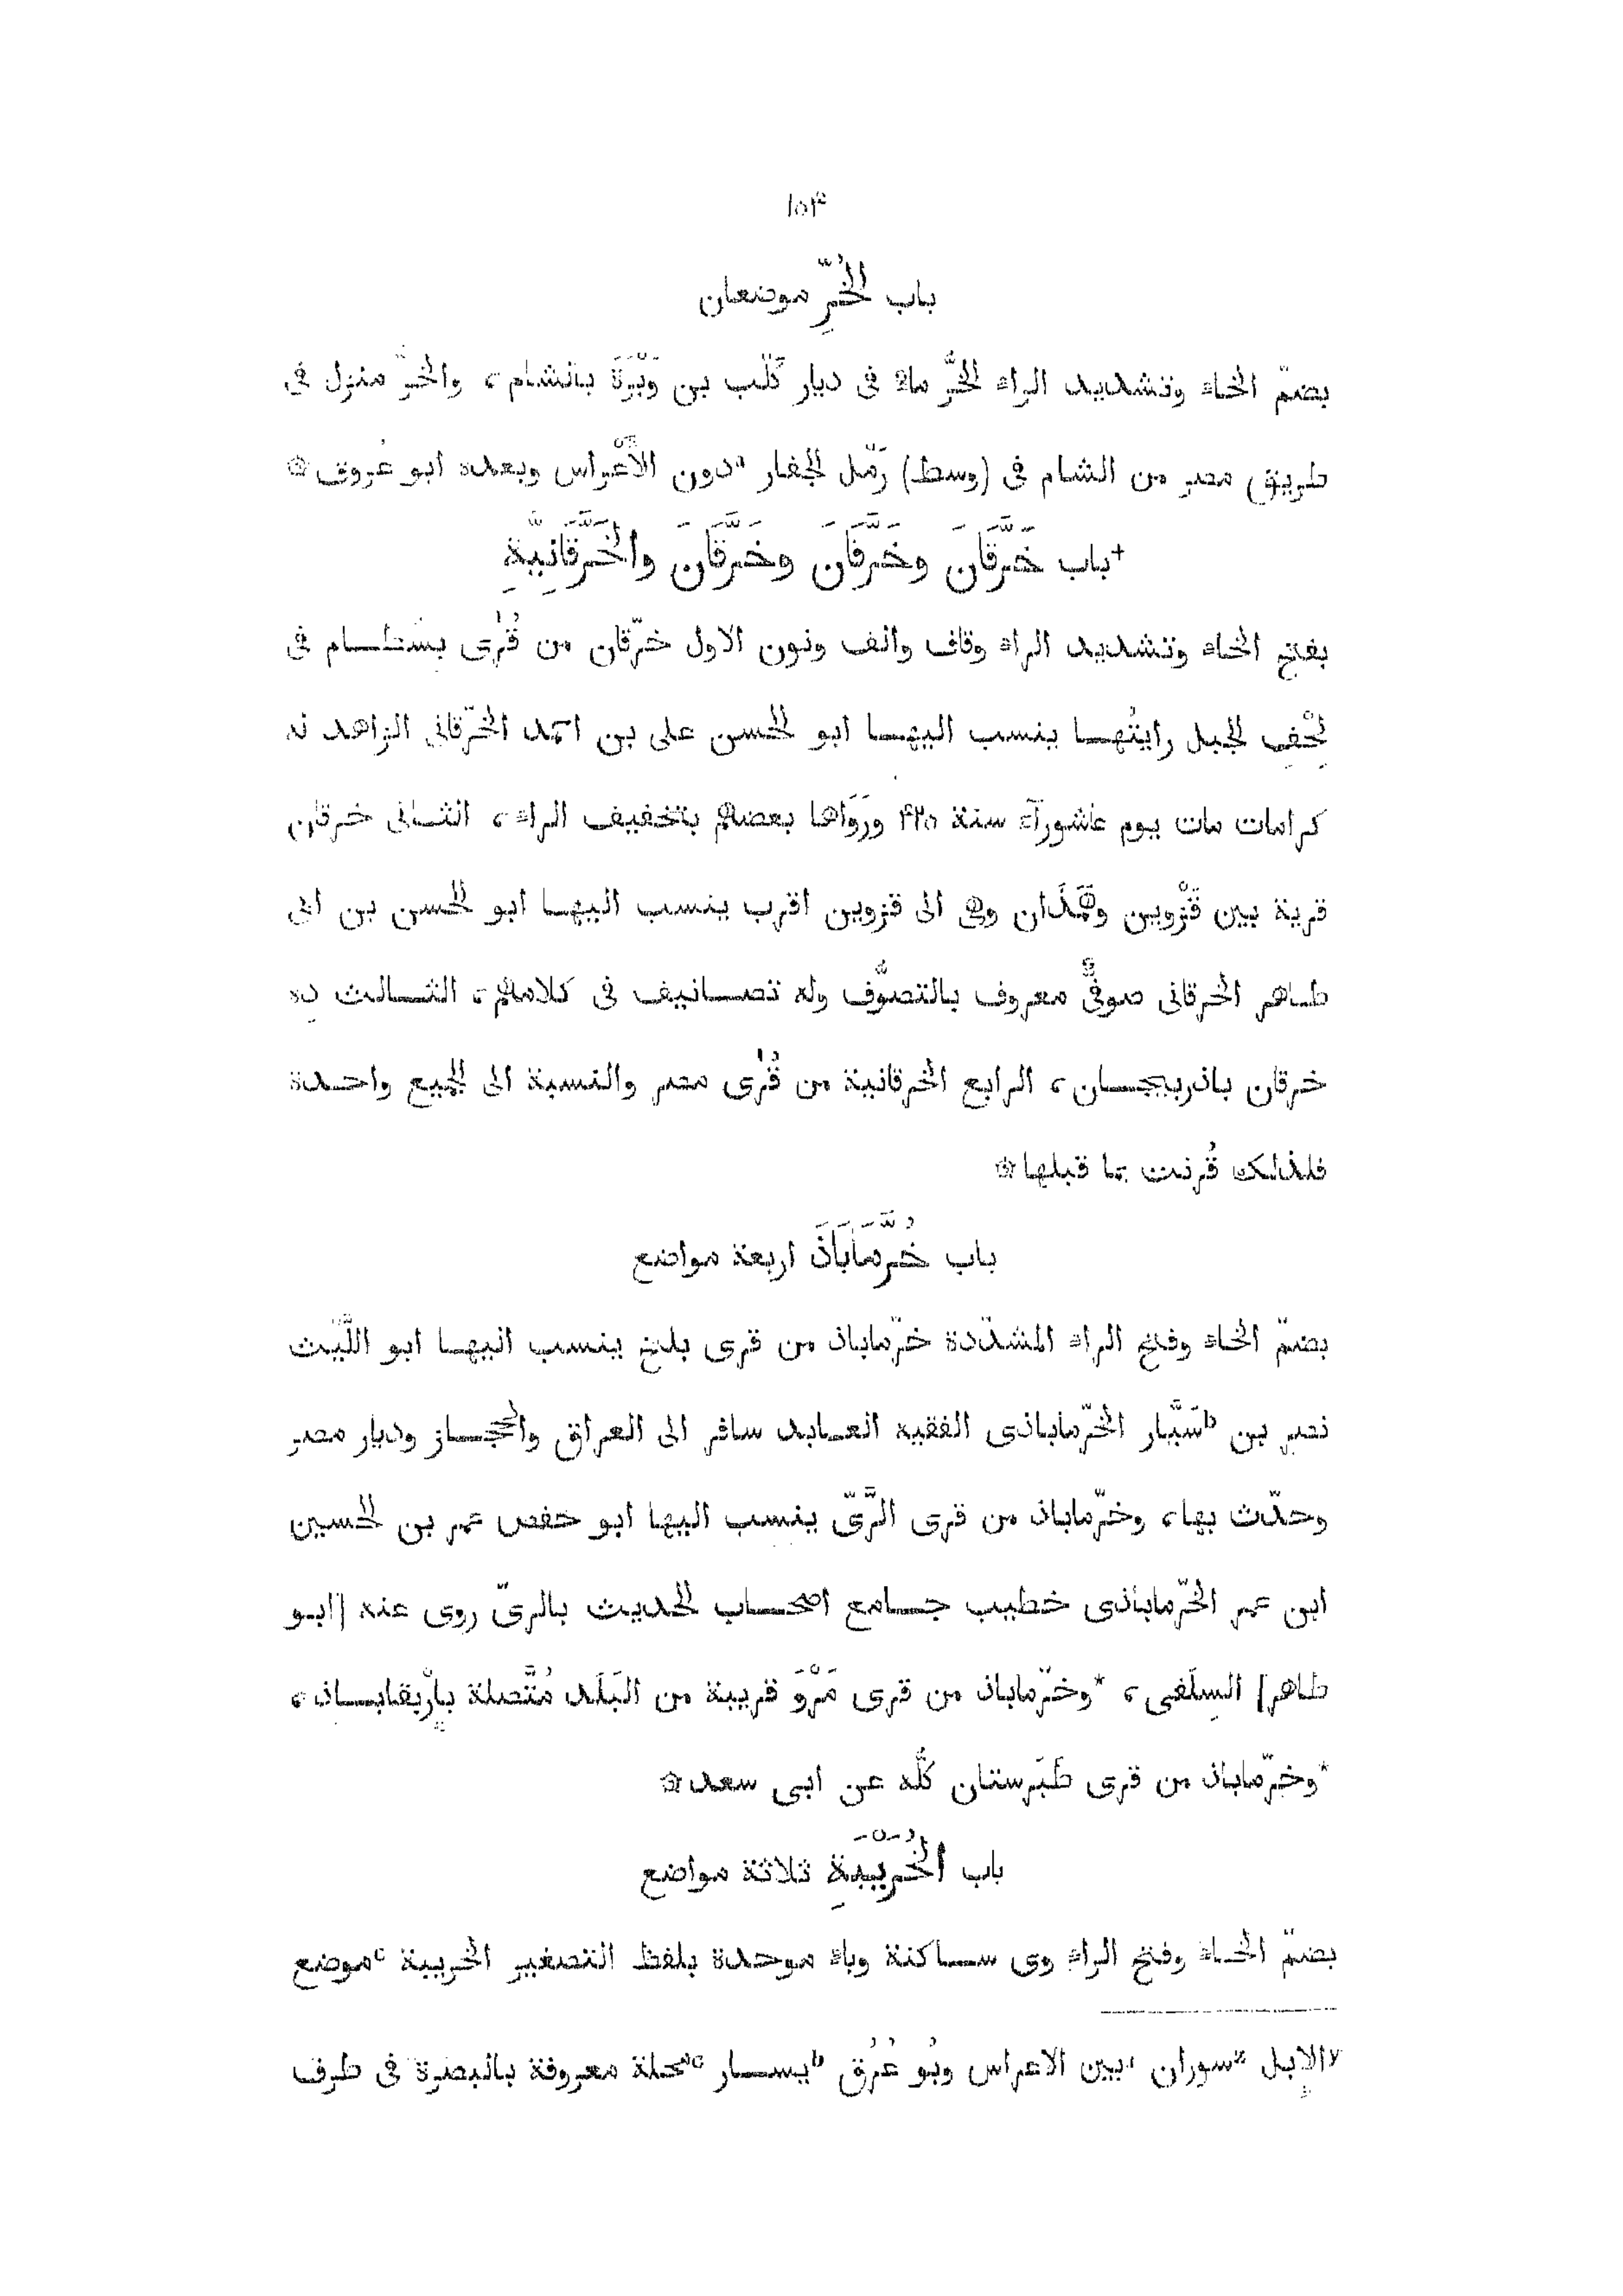 ١٥٤
باب الخُرِّ موضعان
بضمّ الخاء وتشديد الراء الخُرُّ ماءٌ فى ديار كَلْب بن وَبْرَةَ بالشام، والخرّ منزل فى
طريق مصر من الشام فى (وسط) رَمْل الجفار aدون الأَعْراس وبعده ابو عُروق۞
+باب خَرَّقَانَ وخَرَّقَانَ وخَرَّقَانَ والخَرَّقَانِيَّةِ
بفتح الخاء وتشديد الراء وقاف والف ونون الاول خرّقان من قُرَى بسْطام فى
لِحْفِ الجبل رايتُها ينسب اليها ابو الحسن على بن احمد الخرّقانى الزاهد له
كرامات مات يوم عاشورآء سنة ۴۲٥ ورَوَاها بعضهم بتخفيف الراء، الثانى خرقان
قرية بين قَزْوين وهَمَذَان وهى الى قزوين اقرب ينسب اليها ابو الحسن بن ابى
طاهر الخرقانى صوفىٌّ معروف بالتصوُّف وله تصانيف فى كلامهم، الثالث دِه
خرقان باذربيجان، الرابع الخرقانية من قُرَى مصر والنسبة الى الجميع واحدة
فلذلك قُرنت بما قبلها۞
باب خُرَّمَابَاذَ اربعة مواضع
بضمّ الخاء وفتح الراء المشدّدة خرّماباذ من قرى بلخ ينسب اليها ابو اللَّيْث
نصر بن bسَيَّار الخرّماباذى الفقيه العابد سافر الى العراق والحجاز وديار مصر
وحدّث بها، وخرّماباذ من قرى الرَّىّ ينسب اليها ابو حفص عمر بن الحسين
ابن عمر الخرّماباذى خطيب جامع اصحاب الحديث بالرىّ روى عنه [ابو
طاهر] السِلَفى، *وخرّماباذ من قرى مَرْوَ قريبة من البَلَد مُتَّصلة بإرْيقاباذ،
*وخرّماباذ من قرى طَبَرستان كُلُّه عن ابى سعد۞
باب الخُرَيْبَةِ ثلاثة مواضع
بضمّ الخاء وفتح الراء وى ساكنة وباء موحدة بلفظ التصغير الخريبة cموضع
yالإبل zسوران aبين الاعراس وبُو عُرُق bيسار cمحلة معروفة بالبصرة فى طرف